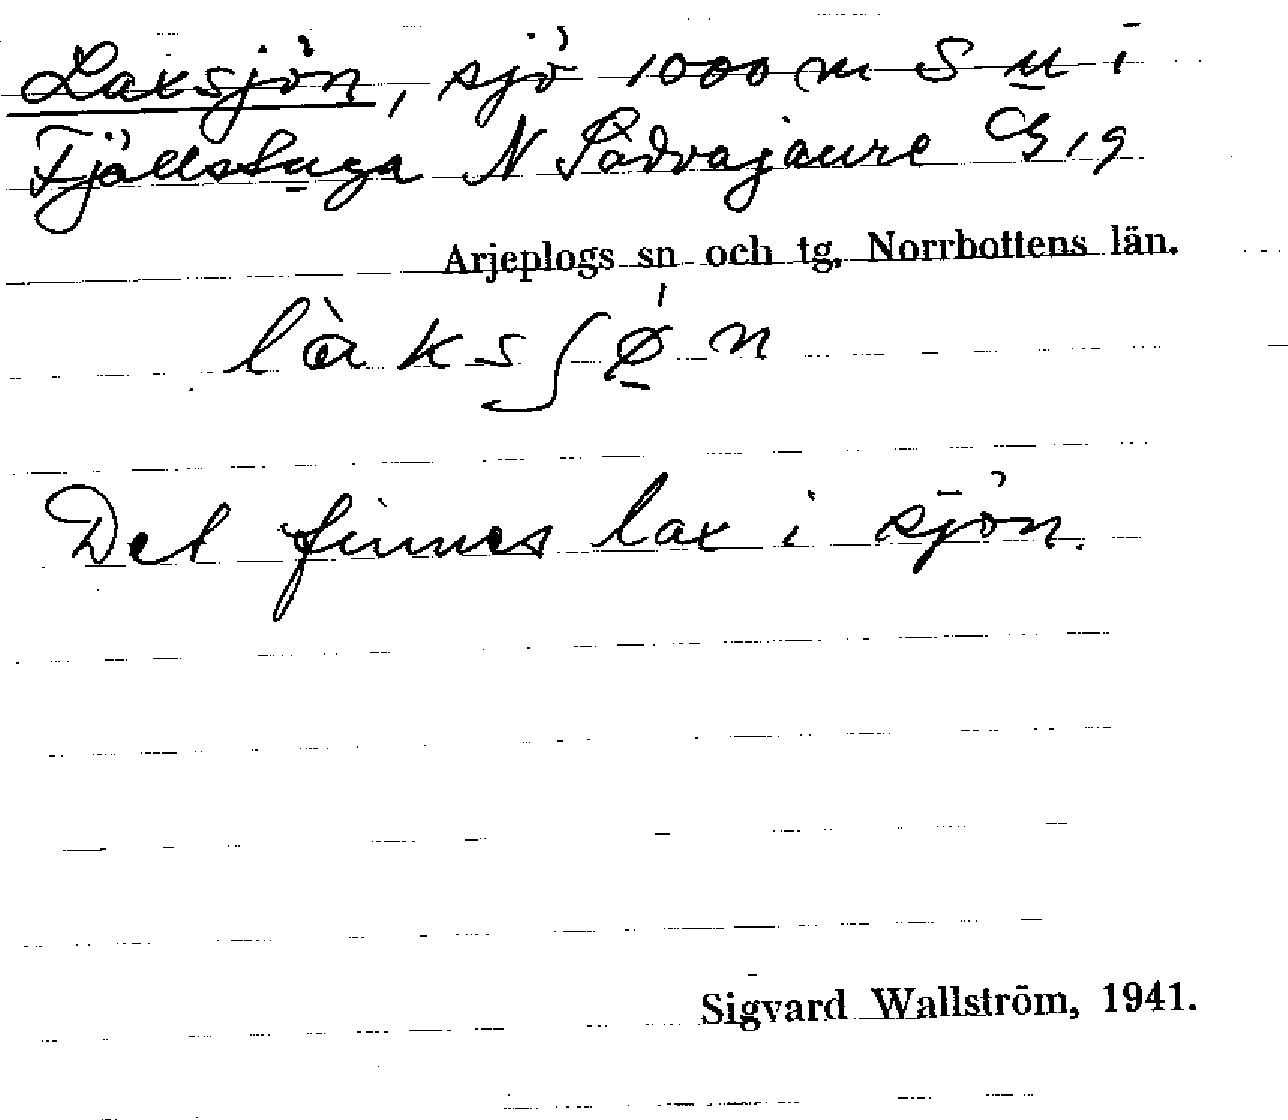 Laxsjön, sjö 1000 m S u i
Fjällstuga N Sädvajaure G 19
Arjeplogs sn och tg. Norrbottens län.
làksʃǿ̱n
Det finnes lax i sjön.
Sigvard Wallström, 1941.